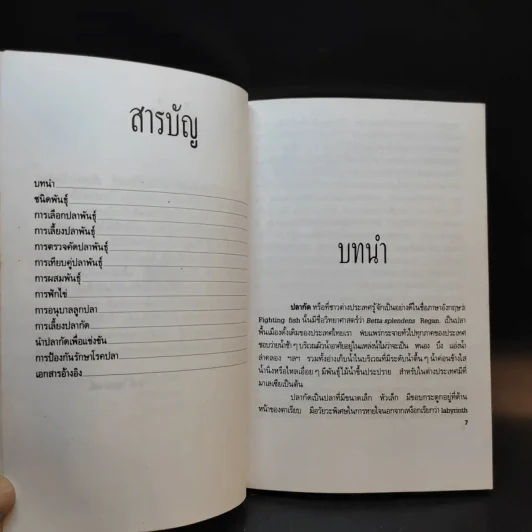 สารบัญ
บทนำ
ชนิดพันธุ์
การเลือกปลาพันธุ์
การเลี้ยงปลาพันธุ์
การตรวจคัดปลาพันธุ์
การเทียบคู่ปลาพันธุ์
การผสมพันธุ์
การฟักไข่
การอนุบาลลูกปลา
การเลี้ยงปลากัด
นำปลากัดเพื่อแข่งขัน
การป้องกันรักษาโรคปลา
เอกสารอ้างอิง
บทนำ
ปลากัด หรือที่ชาวต่างประเทศรู้จักเป็นอย่างดีในชื่อภาษาอังกฤษว่า
Fighting fish นั้นมีชื่อวิทยาศาสตร์ว่า Betta splendens Regan. เป็นปลา
พื้นเมืองดั้งเดิมของประเทศไทยเรา พบแพร่กระจายทั่วไปทุกภาคของประเทศ
ชอบว่ายน้ำช้า ๆ บริเวณผิวน้ำอาศัยอยู่ในแหล่งน้ำไม่ว่าจะเป็น หนอง บึง แอ่งน้ำ
ลำคลอง ฯลฯ รวมทั้งอ่างเก็บน้ำในบริเวณที่มีระดับน้ำตื้น ๆ น้ำค่อนข้างใส
น้ำนิ่งหรือไหลเอื่อย ๆ มีพันธุ์ไม้น้ำขึ้นประปราย สำหรับในต่างประเทศมีที่
มาเลเซียเป็นต้น
ปลากัดเป็นปลาที่มีขนาดเล็ก หัวเล็ก มีขอบกระดูกอยู่ที่ด้าน
หน้าของตาเรียบ มีอวัยวะพิเศษในการหายใจนอกจากเหงือกเรียกว่า labyrinth
7